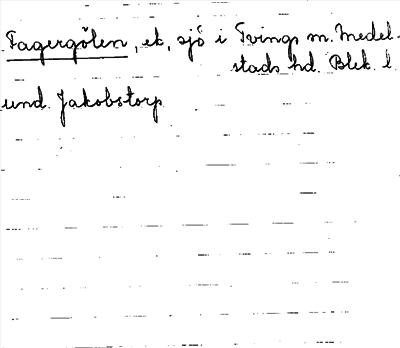 Fagergölen, ek. sjö i Tvings sn. Medel-
stads hd. Blek. l.
und. Jakobstorp